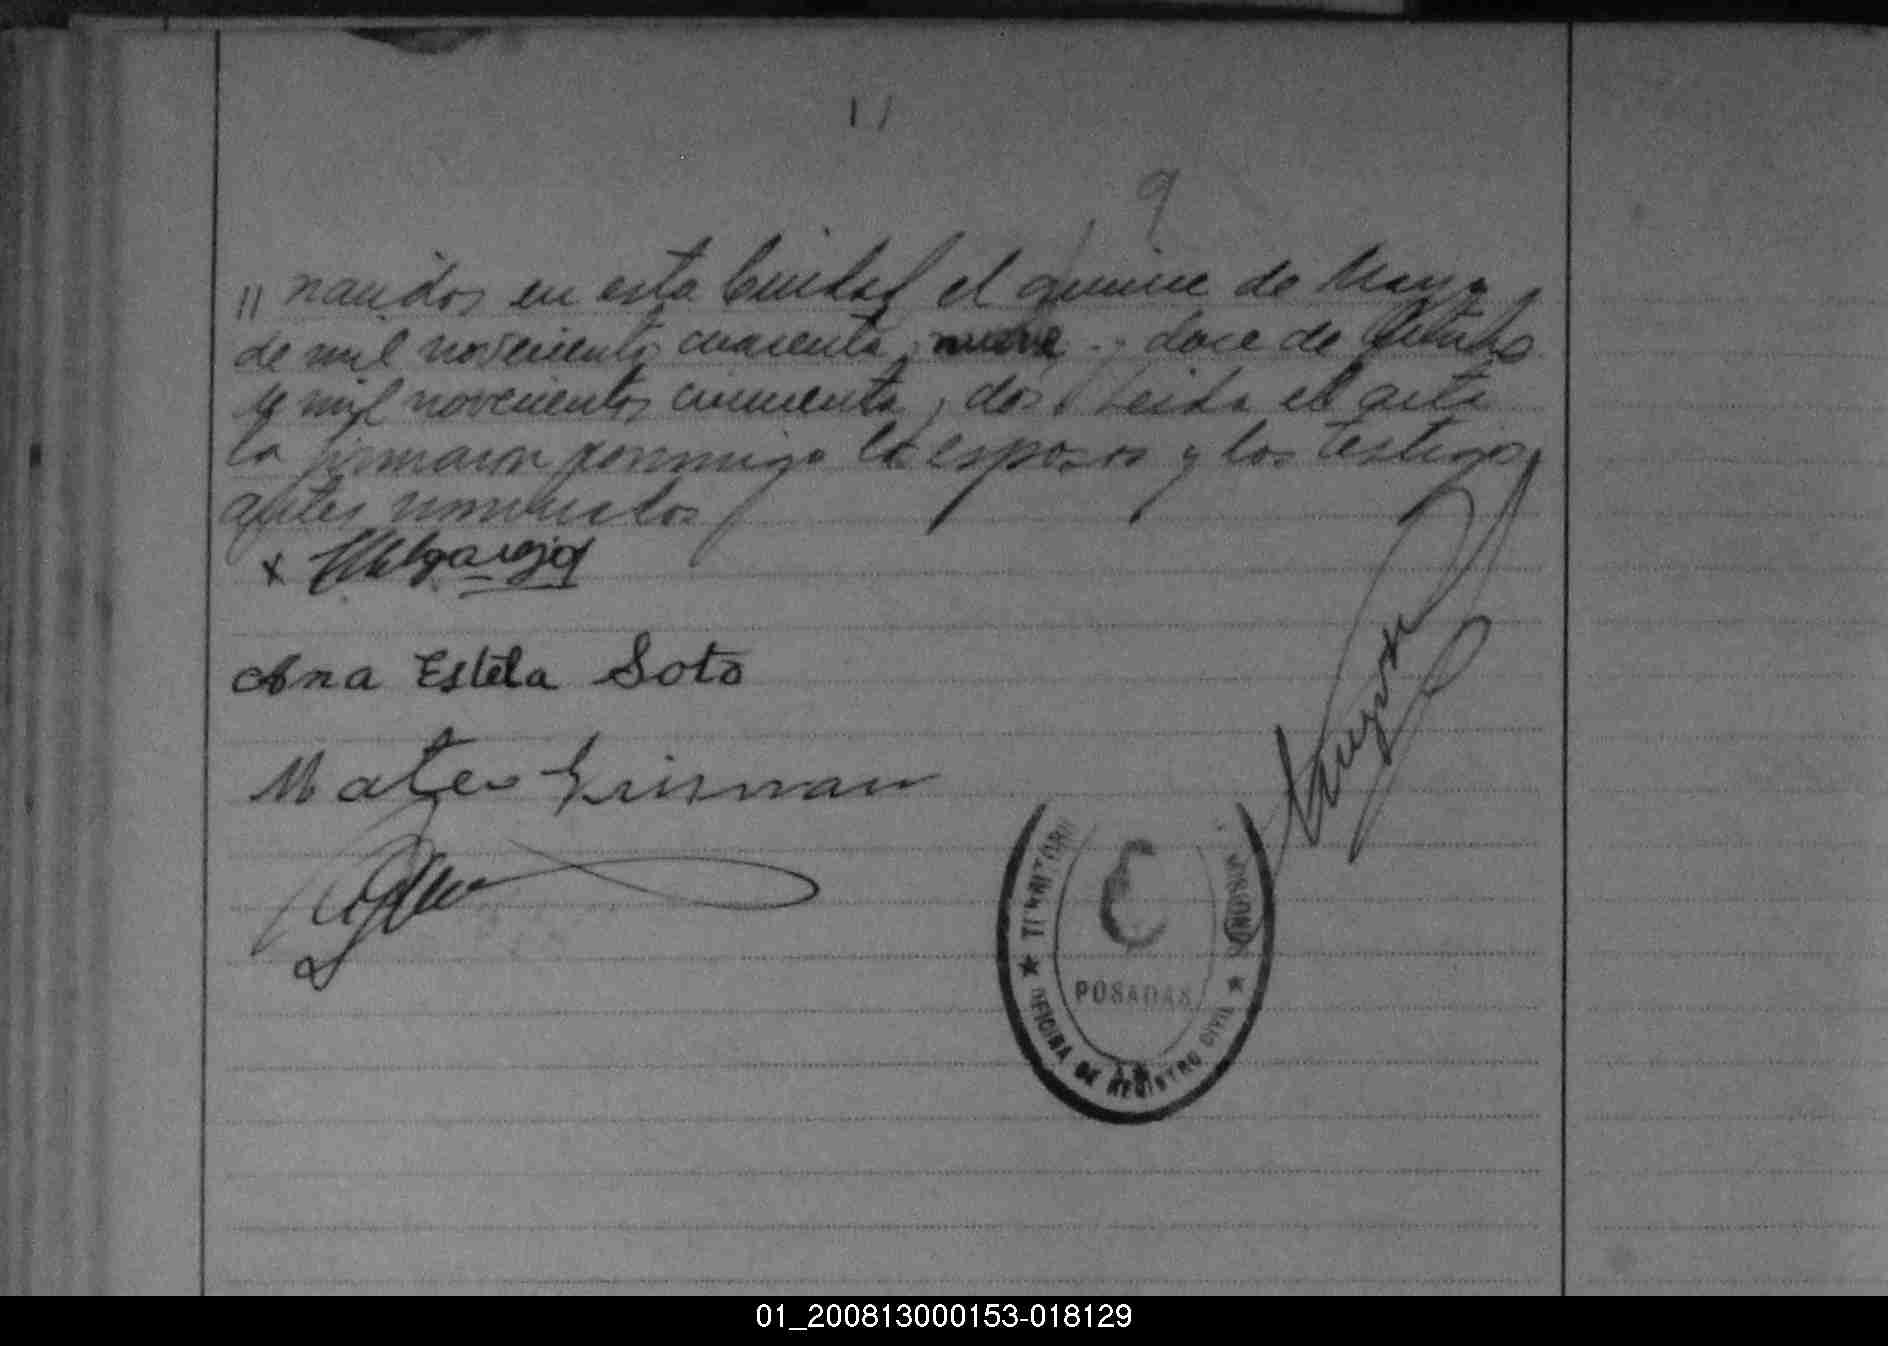 11
9
" nacidos en esta Ciudad el quince de Mayo
de mil novecientos cuarenta y nueve y doce de Octubre
de mil novecientos cincuenta y dos. Leida el acta
la firmaron conmigo los esposos y los testigos
antes nombrados
x
Ana Estela Soto
Mateo Grisman
TERRITORIO MISIONES
POSADAS
★ OFICINA DE REGISTRO CIVIL ★
01_200813000153-018129